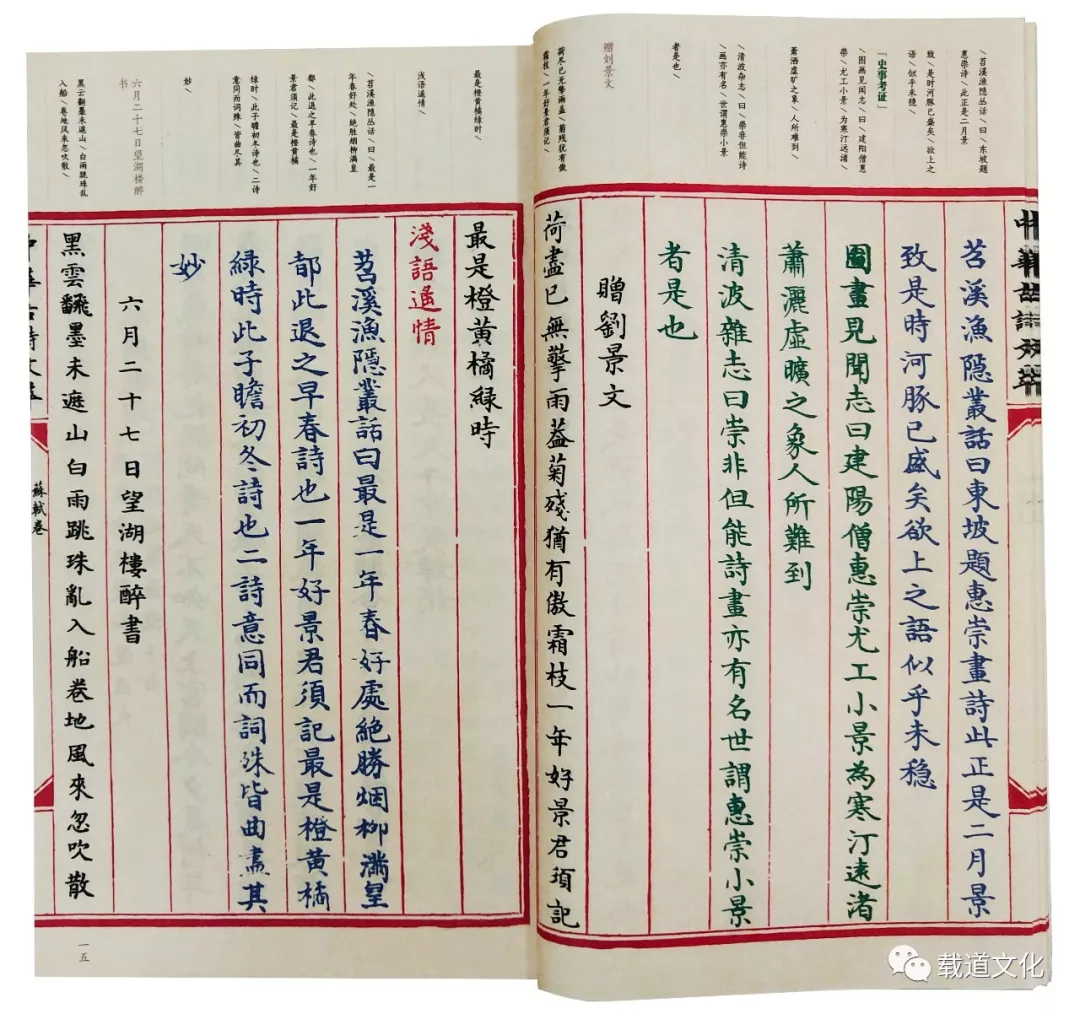 \苕溪渔隐丛话\曰\东坡题
惠崇诗\此正是二月景
致\是时河豚已盛矣\欲上之
语\似乎未穏
「史事考证」
\图画见闻志\曰\建阳僧惠
崇\尤工小景\为寒汀远渚
萧洒虚旷之象\人所难到\
\清波杂志\曰\崇非但能诗
\画亦有名\世谓惠崇小景
者是也\
赠刘景文
荷尽已无擎雨盖\菊残犹有傲
霜枝\一年好景君须记\
苕溪漁隐叢話曰東坡題惠崇畫詩此正是二月景
致是時河豚已盛矣欲上之語似乎未穏
圖畫見聞志曰建陽僧惠崇尤工小景為寒汀遠渚
蕭灑虛曠之象人所難到
清波雜志曰崇非但能詩畫亦有名世謂惠崇小景
者是也
贈劉景文
荷盡已無擎雨蓋菊殘猶有傲霜枝一年好景君須記
最是橙黄橘绿时\
浅语遥情\
\苕溪渔隐丛话\曰\最是一
年春好处\绝胜烟柳满皇
都\此退之早春诗也\一年好
景君须记\最是橙黄橘
绿时\此子瞻初冬诗也\二诗
意同而词殊\皆曲尽其
妙\
六月二十七日望湖楼醉
书
黑云翻墨未遮山\白雨跳珠乱
入船\卷地风来忽吹散\
最是橙黄橘緑時
淺語遥情
苕溪漁隐叢話曰最是一年春好處絶勝烟柳滿皇
都此退之早春詩也一年好景君須記最是橙黄橘
緑時此子瞻初冬詩也二詩意同而詞殊皆曲盡其
妙
六月二十七日望湖樓醉書
黑雲飜墨未遮山白雨跳珠亂入船卷地風來忽吹散
蘇軾卷
一五
载道文化